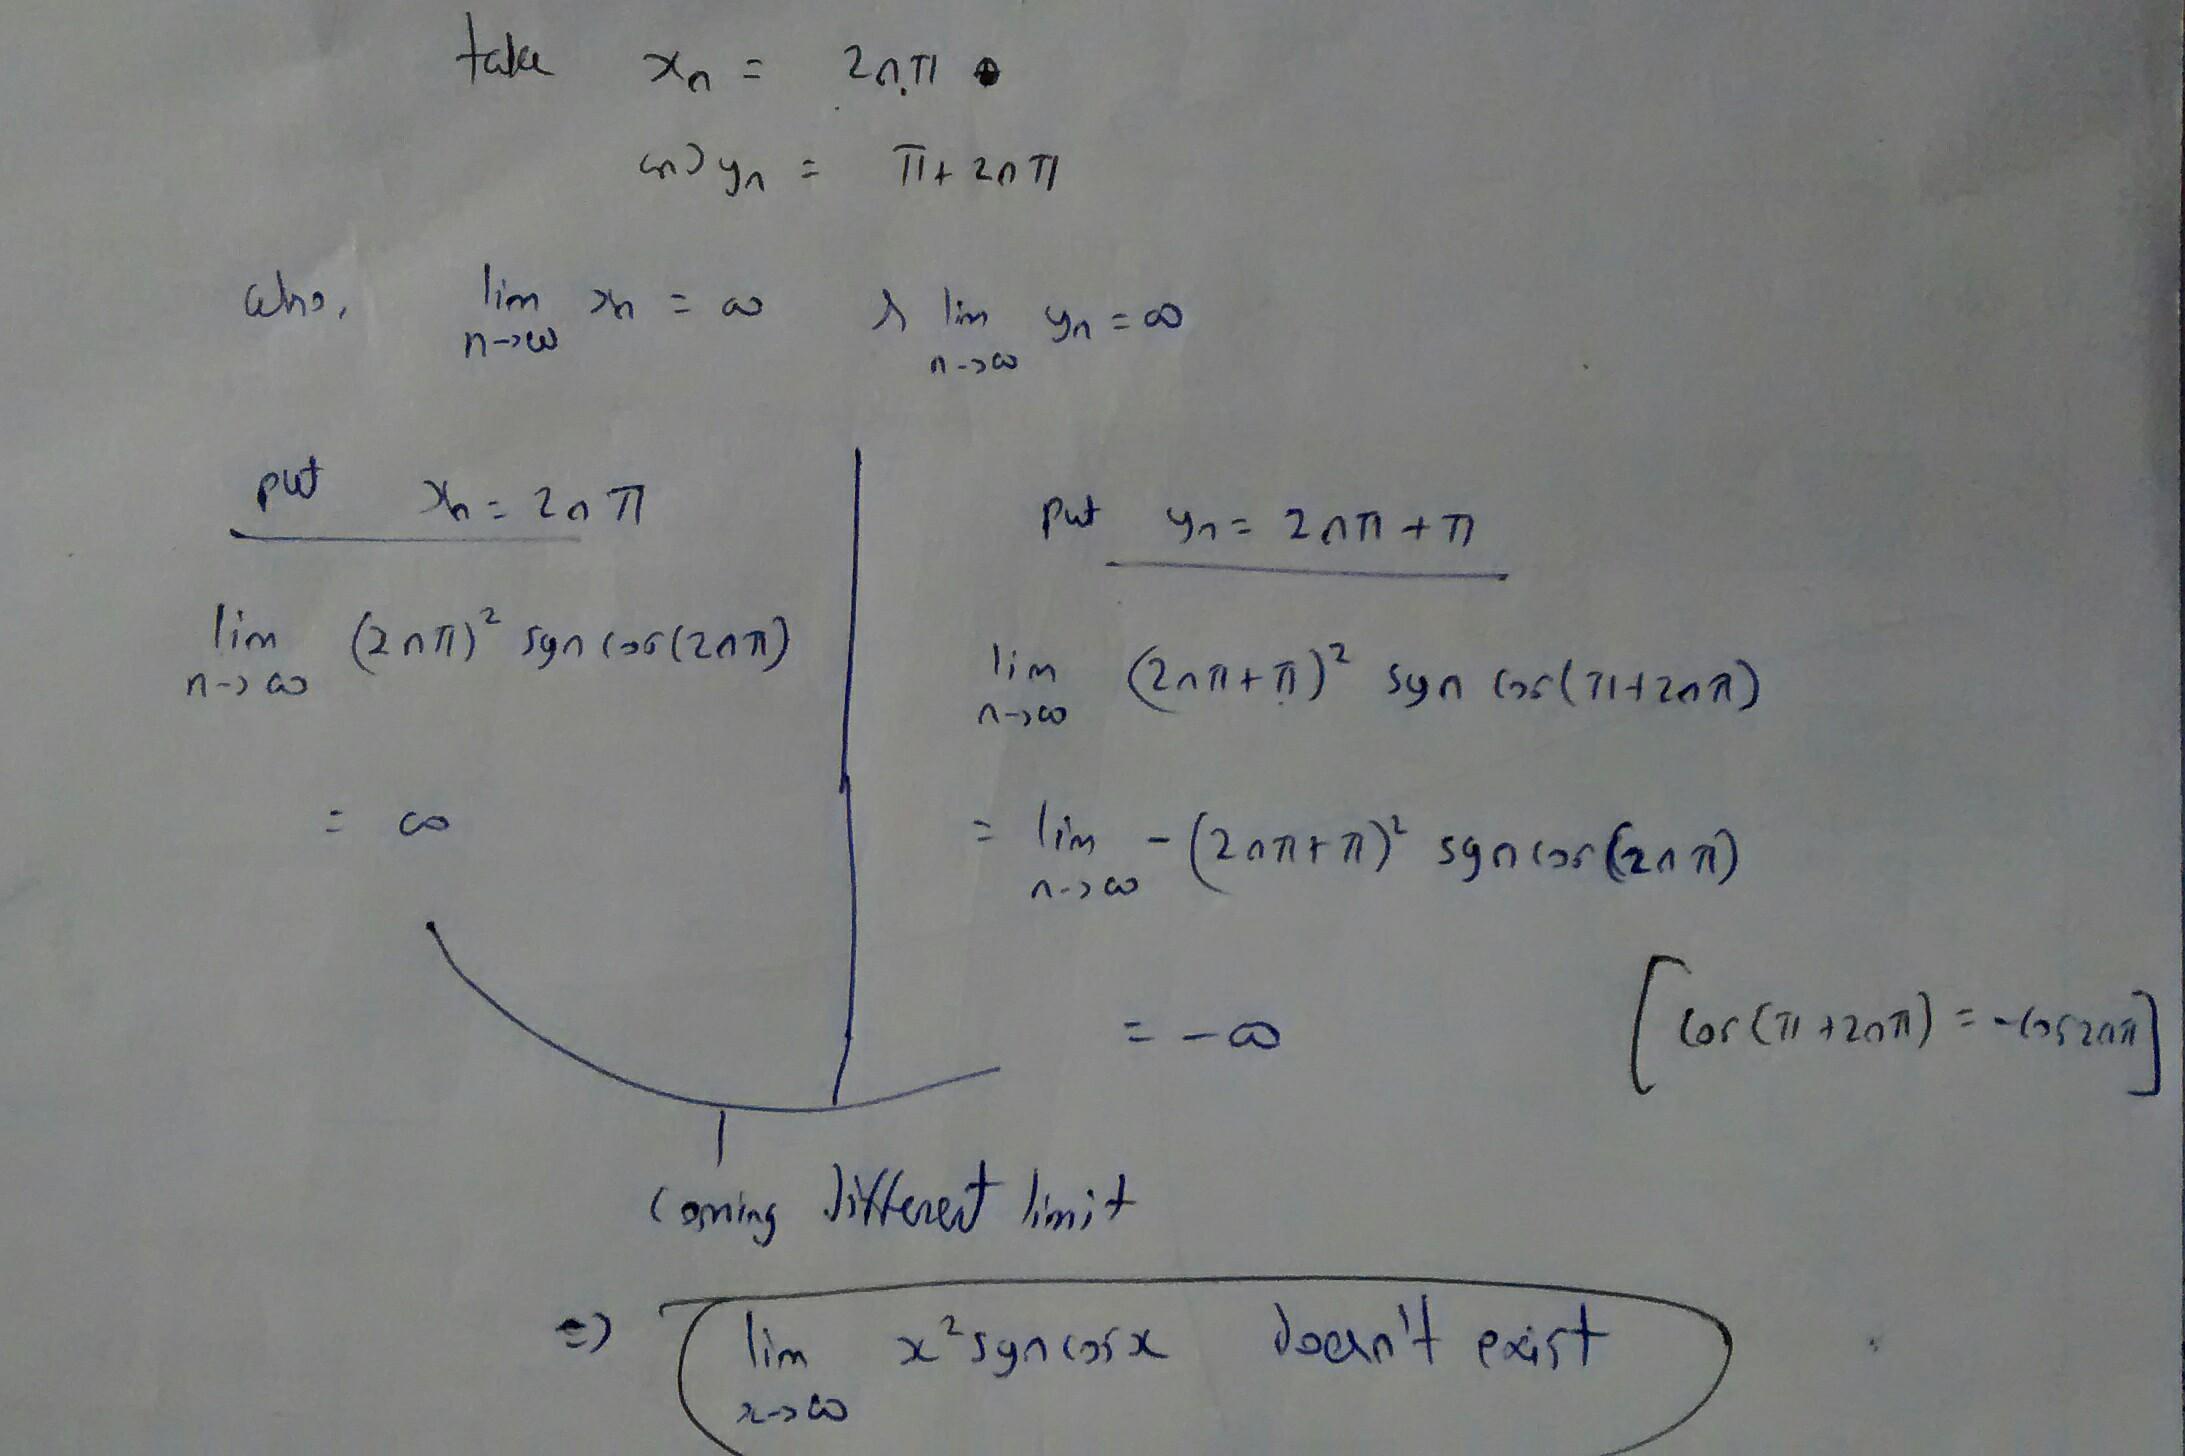 take xn = 2nπ
and yn = π + 2nπ
also, lim n→∞ xn = ∞ & lim n→∞ yn = ∞
put xn = 2nπ
lim n→∞ (2nπ)² sgn cos(2nπ)
= ∞
put yn = 2nπ + π
lim n→∞ (2nπ+π)² sgn cos(π+2nπ)
= lim n→∞ -(2nπ+π)² sgn cos(2nπ)
= -∞
[cos(π+2nπ) = -cos2nπ]
coming different limit
⇒ lim x→∞ x² sgn cosx doesn't exist